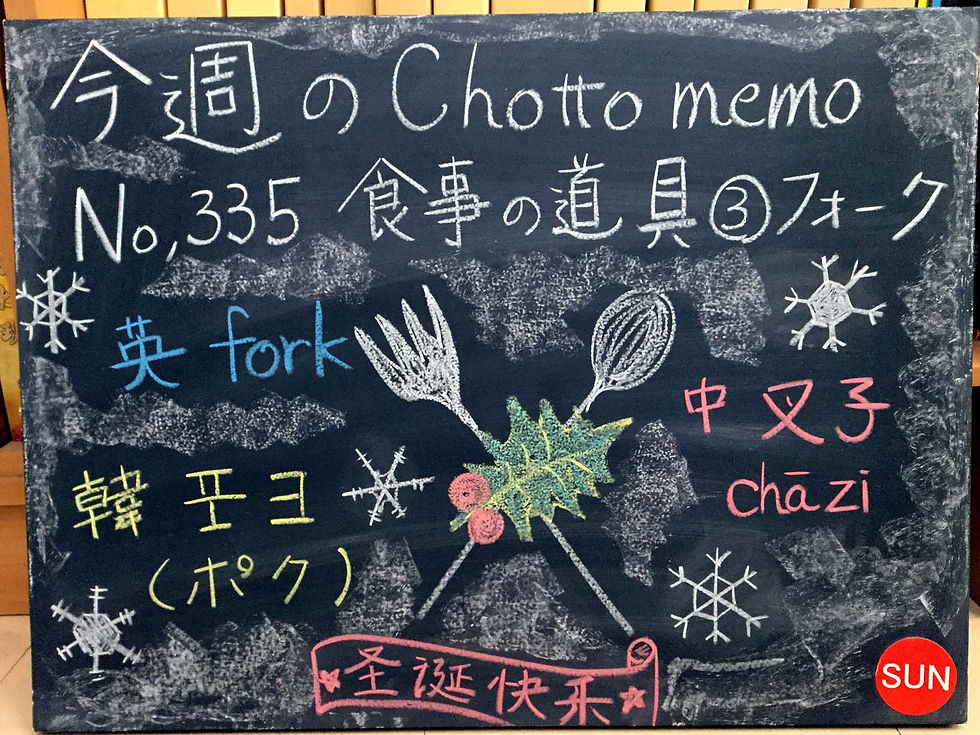 今週のChotto memo
No,335 食事の道具③フォーク
英 fork
中 叉子
chāzi
韓 포크
(ポク)
圣诞快乐
SUN